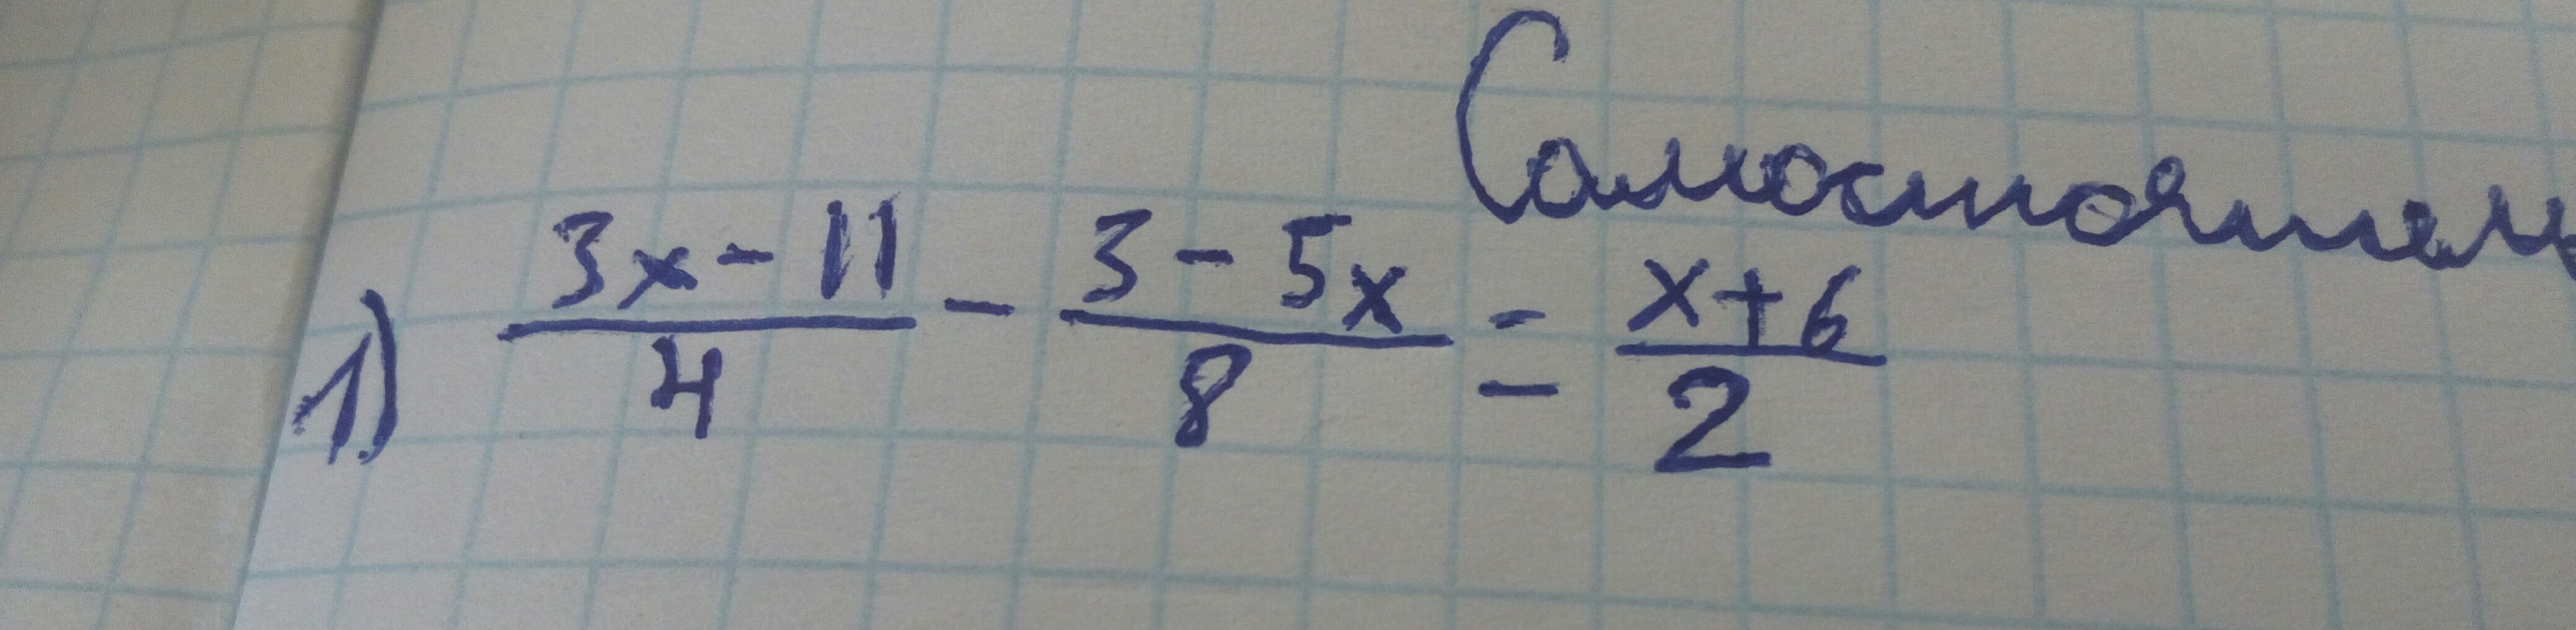 Самостоятель
1) (3x-11)/4 - (3-5x)/8 = (x+6)/2